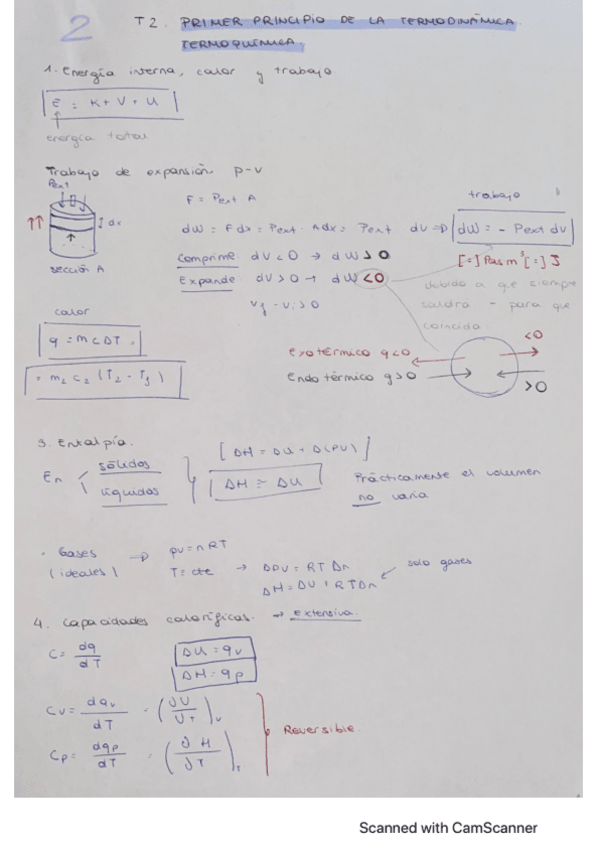 2
T2. PRIMER PRINCIPIO DE LA TERMODINÁMICA.
TERMOQUÍMICA.
1. Energía interna, calor y trabajo
E = K + V + U
energía total
Trabajo de expansión P-V
Pext
dx
sección A
F = Pext A
dW = Fdx = Pext · Adx = Pext dV ⇒ dW = - Pext dV
trabajo
[=] Pas m³ [=] J
Comprime dV < 0 → dW > 0
Expande dV > 0 → dW < 0
Vf - Vi > 0
debido a que siempre
saldrá - para que
coincida.
calor
q = m c ΔT
= m₂ c₂ (T₂ - Tf)
exotérmico q<0
Endotérmico q>0
<0
>0
3. Entalpía.
En
sólidos
líquidos
[ΔH = ΔU + Δ(PV)]
ΔH ≃ ΔU
Prácticamente el volumen
no varía
· Gases
(ideales)
⇒ PV = nRT
T = cte → ΔPV = RT Δn
ΔH = ΔU + RTΔn
solo gases
4. Capacidades caloríficas. → extensiva.
C = dq/dT
ΔU = qv
ΔH = qp
Cv = dqv/dT
Cp = dqp/dT
Reversible.
Scanned with CamScanner